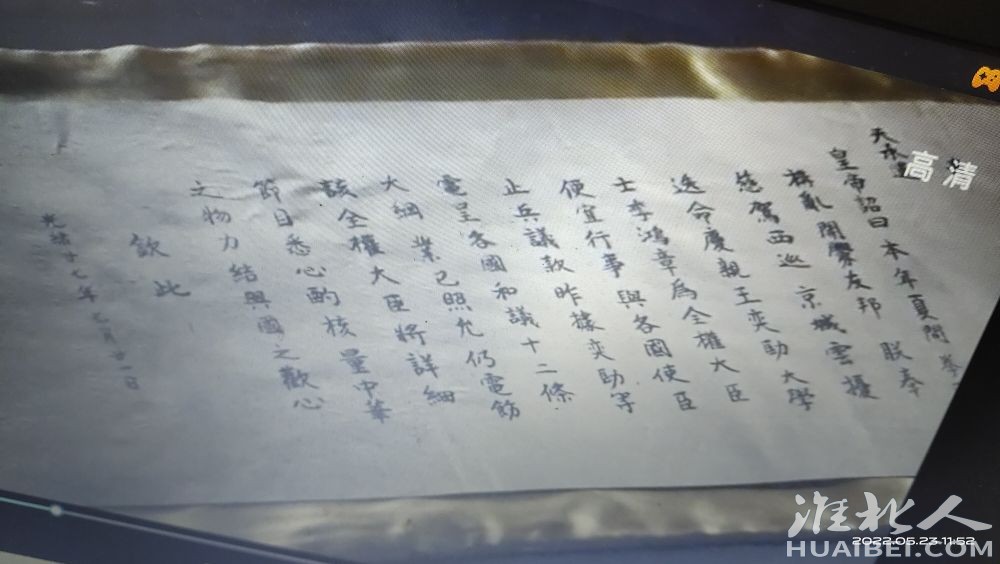 皇帝詔曰 本年夏間 拳
構亂 開釁友邦 朕奉
慈駕西巡 京城雲擾
迭令慶親王奕劻大學
士李鴻章為全權大臣
便宜行事 與各國使臣
止兵議款 昨據奕劻等
電呈各國和議十二條
大綱 業已照允 仍電飭
該全權大臣將詳細
節目悉心酌核 量中華
之物力 結與國之歡心
欽此
光緒廿七年七月廿一日
高清
淮北人
HUAIBEI.COM
2022.05.23 11:52